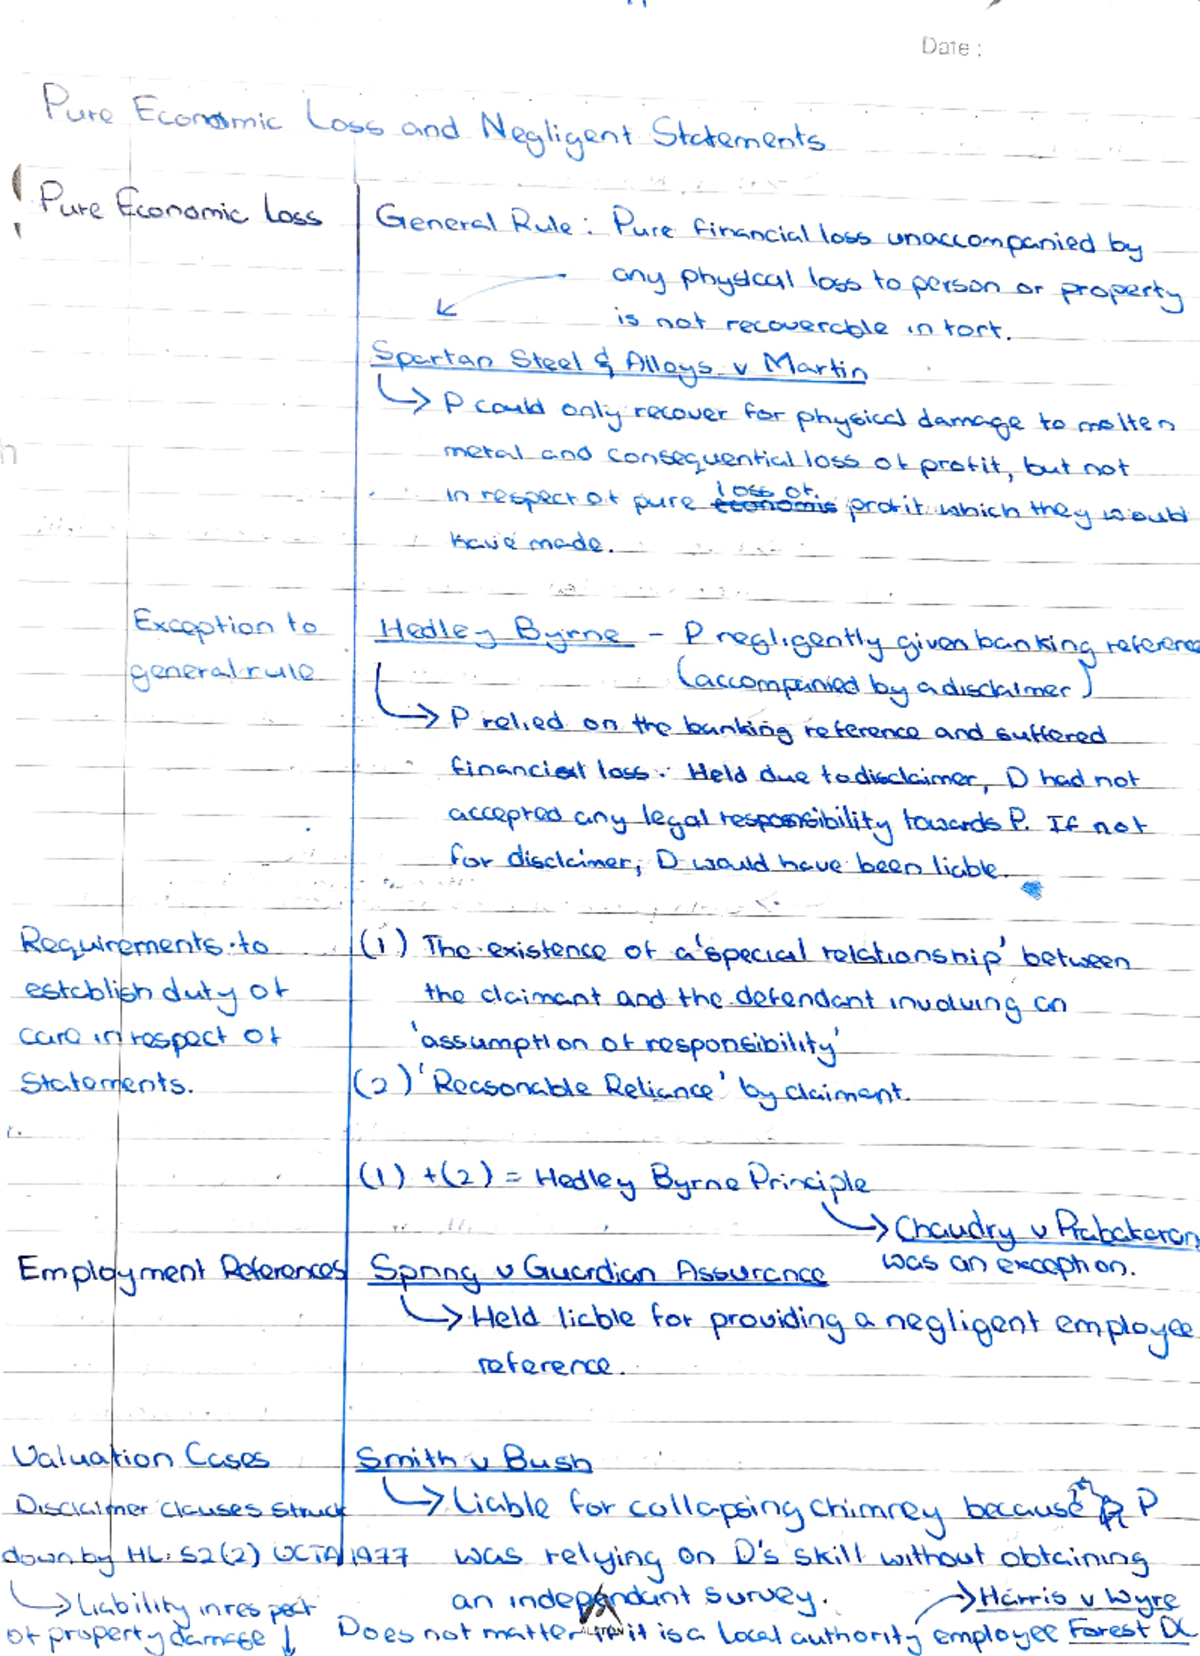 Date :
Pure Economic Loss and Negligent Statements
Pure Economic Loss
General Rule : Pure financial loss unaccompanied by
any physical loss to person or property
is not recoverable in tort.
Spartan Steel & Alloys v Martin
P could only recover for physical damage to molten
metal and consequential loss of profit, but not
loss of
in respect of pure economic profit which they would
have made.
Exception to
general rule
Hedley Byrne - P negligently given banking reference
(accompanied by a disclaimer)
P relied on the banking reference and suffered
financial loss. Held due to disclaimer, D had not
accepted any legal responsibility towards P. If not
for disclaimer, D would have been liable.
Requirements to
establish duty of
care in respect of
Statements.
(1) The existence of a 'special relationship' between
the claimant and the defendant involving an
'assumption of responsibility'
(2) 'Reasonable Reliance' by claimant.
(1) + (2) = Hedley Byrne Principle
Chaudry v Prabakaran
was an exception.
Employment References
Spring v Guardian Assurance
Held liable for providing a negligent employee
reference.
Valuation Cases
Disclaimer clauses struck
down by HL: S2(2) UCTA 1977
Liability in respect
of property damage ↓
Smith v Bush
Liable for collapsing chimney because P
was relying on D's skill without obtaining
an independant survey.
Harris v Wyre
Does not matter if it is a local authority employee Forest DC